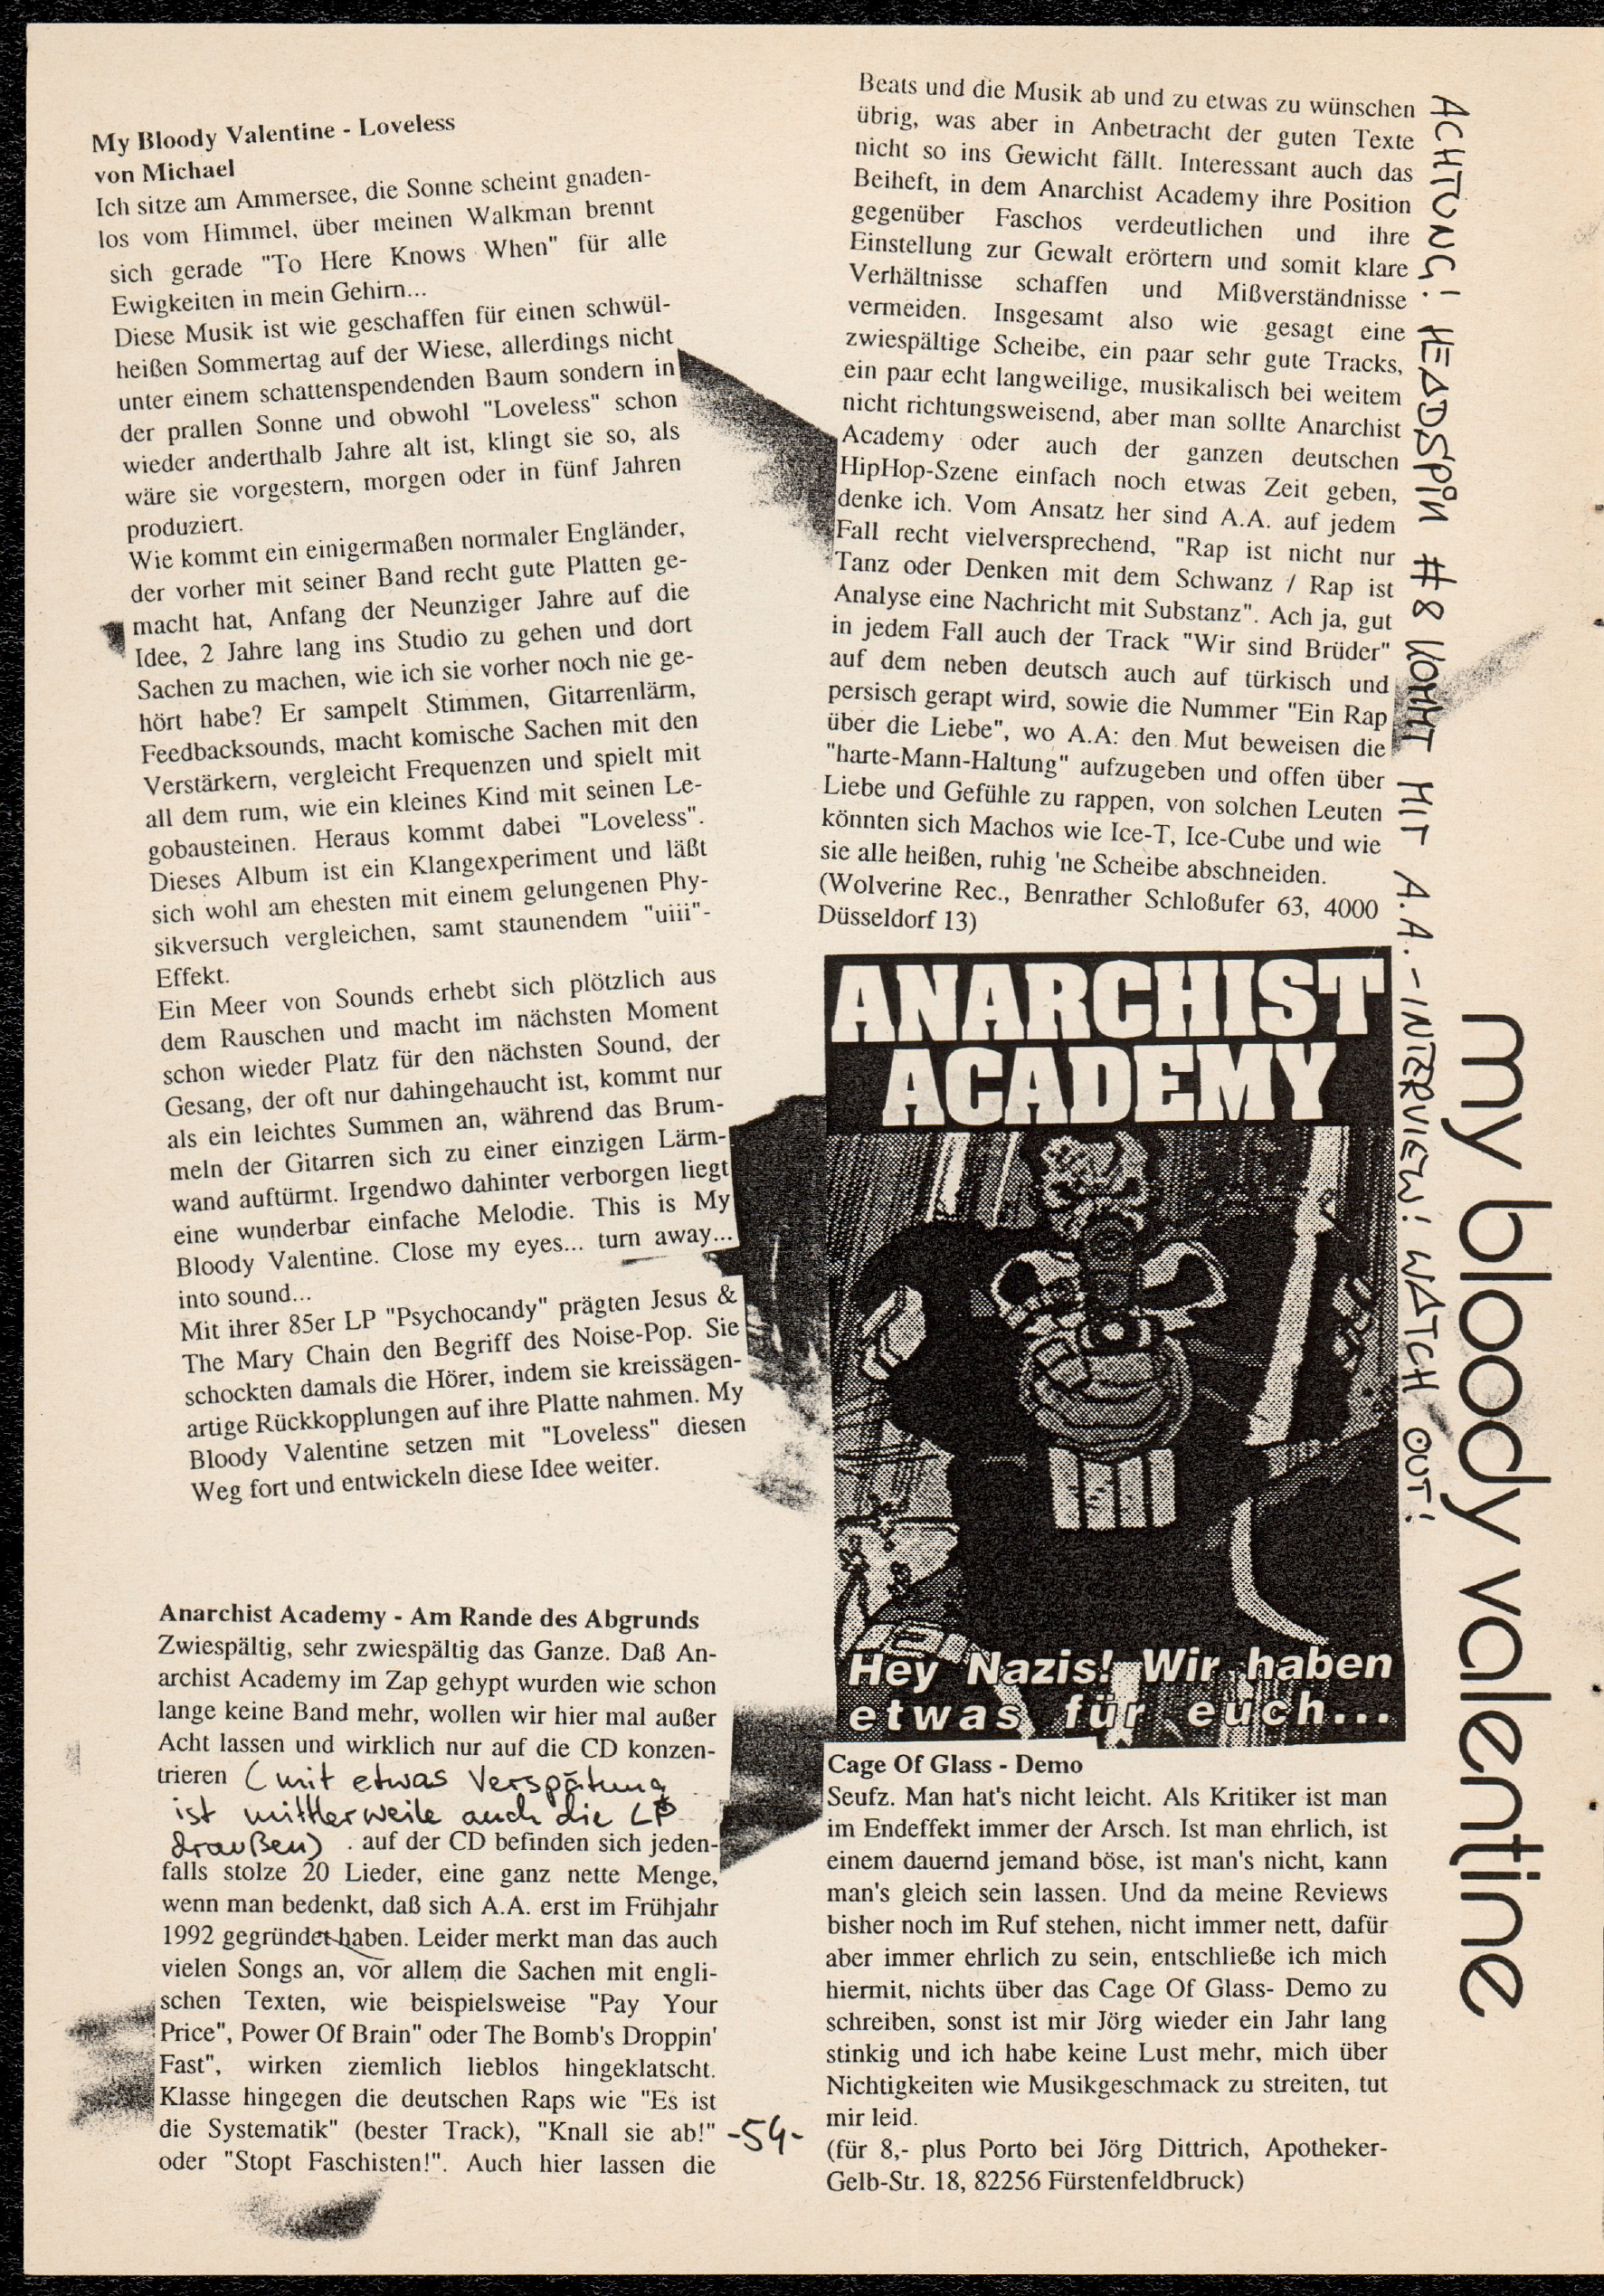 My Bloody Valentine - Loveless
von Michael
Ich sitze am Ammersee, die Sonne scheint gnaden-
los vom Himmel, über meinen Walkman brennt
sich gerade "To Here Knows When" für alle
Ewigkeiten in mein Gehirn...
Diese Musik ist wie geschaffen für einen schwül-
heißen Sommertag auf der Wiese, allerdings nicht
unter einem schattenspendenden Baum sondern in
der prallen Sonne und obwohl "Loveless" schon
wieder anderthalb Jahre alt ist, klingt sie so, als
wäre sie vorgestern, morgen oder in fünf Jahren
produziert.
Wie kommt ein einigermaßen normaler Engländer,
der vorher mit seiner Band recht gute Platten ge-
macht hat, Anfang der Neunziger Jahre auf die
Idee, 2 Jahre lang ins Studio zu gehen und dort
Sachen zu machen, wie ich sie vorher noch nie ge-
hört habe? Er sampelt Stimmen, Gitarrenlärm,
Feedbacksounds, macht komische Sachen mit den
Verstärkern, vergleicht Frequenzen und spielt mit
all dem rum, wie ein kleines Kind mit seinen Le-
gobausteinen. Heraus kommt dabei "Loveless".
Dieses Album ist ein Klangexperiment und läßt
sich wohl am ehesten mit einem gelungenen Phy-
sikversuch vergleichen, samt staunendem "uiii"-
Effekt.
Ein Meer von Sounds erhebt sich plötzlich aus
dem Rauschen und macht im nächsten Moment
schon wieder Platz für den nächsten Sound, der
Gesang, der oft nur dahingehaucht ist, kommt nur
als ein leichtes Summen an, während das Brum-
meln der Gitarren sich zu einer einzigen Lärm-
wand auftürmt. Irgendwo dahinter verborgen liegt
eine wunderbar einfache Melodie. This is My
Bloody Valentine. Close my eyes... turn away...
into sound...
Mit ihrer 85er LP "Psychocandy" prägten Jesus &
The Mary Chain den Begriff des Noise-Pop. Sie
schockten damals die Hörer, indem sie kreissägen-
artige Rückkopplungen auf ihre Platte nahmen. My
Bloody Valentine setzen mit "Loveless" diesen
Weg fort und entwickeln diese Idee weiter.
Anarchist Academy - Am Rande des Abgrunds
Zwiespältig, sehr zwiespältig das Ganze. Daß An-
archist Academy im Zap gehypt wurden wie schon
lange keine Band mehr, wollen wir hier mal außer
Acht lassen und wirklich nur auf die CD konzen-
trieren (mit etwas Verspätung
ist mittlerweile auch die LP
draußen) . auf der CD befinden sich jeden-
falls stolze 20 Lieder, eine ganz nette Menge,
wenn man bedenkt, daß sich A.A. erst im Frühjahr
1992 gegründet haben. Leider merkt man das auch
vielen Songs an, vor allem die Sachen mit engli-
schen Texten, wie beispielsweise "Pay Your
Price", Power Of Brain" oder The Bomb's Droppin'
Fast", wirken ziemlich lieblos hingeklatscht.
Klasse hingegen die deutschen Raps wie "Es ist
die Systematik" (bester Track), "Knall sie ab!"
oder "Stopt Faschisten!". Auch hier lassen die
-54-
Beats und die Musik ab und zu etwas zu wünschen
übrig, was aber in Anbetracht der guten Texte
nicht so ins Gewicht fällt. Interessant auch das
Beiheft, in dem Anarchist Academy ihre Position
gegenüber Faschos verdeutlichen und ihre
Einstellung zur Gewalt erörtern und somit klare
Verhältnisse schaffen und Mißverständnisse
vermeiden. Insgesamt also wie gesagt eine
zwiespältige Scheibe, ein paar sehr gute Tracks,
ein paar echt langweilige, musikalisch bei weitem
nicht richtungsweisend, aber man sollte Anarchist
Academy oder auch der ganzen deutschen
HipHop-Szene einfach noch etwas Zeit geben,
denke ich. Vom Ansatz her sind A.A. auf jedem
Fall recht vielversprechend, "Rap ist nicht nur
Tanz oder Denken mit dem Schwanz / Rap ist
Analyse eine Nachricht mit Substanz". Ach ja, gut
in jedem Fall auch der Track "Wir sind Brüder"
auf dem neben deutsch auch auf türkisch und
persisch gerapt wird, sowie die Nummer "Ein Rap
über die Liebe", wo A.A: den Mut beweisen die
"harte-Mann-Haltung" aufzugeben und offen über
Liebe und Gefühle zu rappen, von solchen Leuten
könnten sich Machos wie Ice-T, Ice-Cube und wie
sie alle heißen, ruhig 'ne Scheibe abschneiden.
(Wolverine Rec., Benrather Schloßufer 63, 4000
Düsseldorf 13)
ANARCHIST
ACADEMY
Hey Nazis! Wir haben
etwas für euch...
Cage Of Glass - Demo
Seufz. Man hat's nicht leicht. Als Kritiker ist man
im Endeffekt immer der Arsch. Ist man ehrlich, ist
einem dauernd jemand böse, ist man's nicht, kann
man's gleich sein lassen. Und da meine Reviews
bisher noch im Ruf stehen, nicht immer nett, dafür
aber immer ehrlich zu sein, entschließe ich mich
hiermit, nichts über das Cage Of Glass- Demo zu
schreiben, sonst ist mir Jörg wieder ein Jahr lang
stinkig und ich habe keine Lust mehr, mich über
Nichtigkeiten wie Musikgeschmack zu streiten, tut
mir leid.
(für 8,- plus Porto bei Jörg Dittrich, Apotheker-
Gelb-Str. 18, 82256 Fürstenfeldbruck)
ACHTUNG! HEADSPIN #8 KOMMT MIT A.A.-INTERVIEW! WATCH OUT!
my bloody valentine